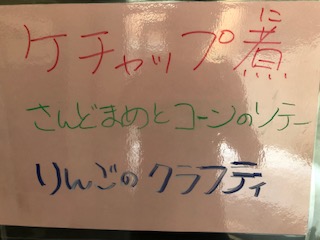 ケチャップ煮
に
さんどまめとコーンのソテー
りんごのクラフティ